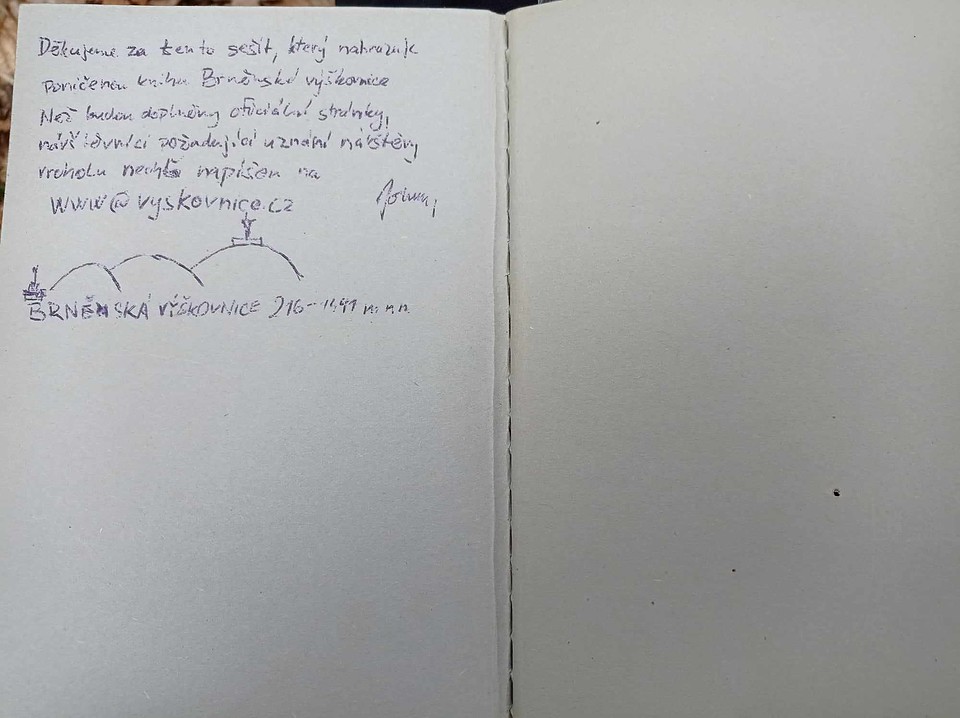 Děkujeme za tento sešit, který nahrazuje
poničenou knihu Brněnské výškovnice
Než budou doplněny oficiální stránky,
návštěvníci požadující uznání návštěvy
vrcholu nechť napíšou na
www@vyskovnice.cz
BRNĚNSKÁ VÝŠKOVNICE 216-1491 m.n.m.